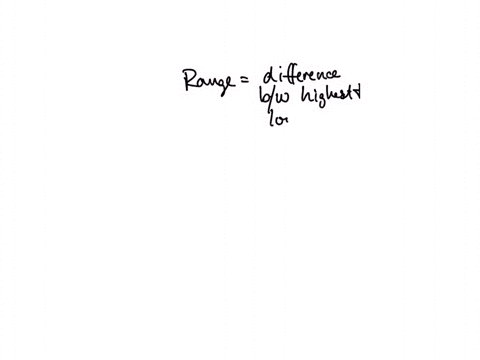 Range = difference
b/w highest &
lo